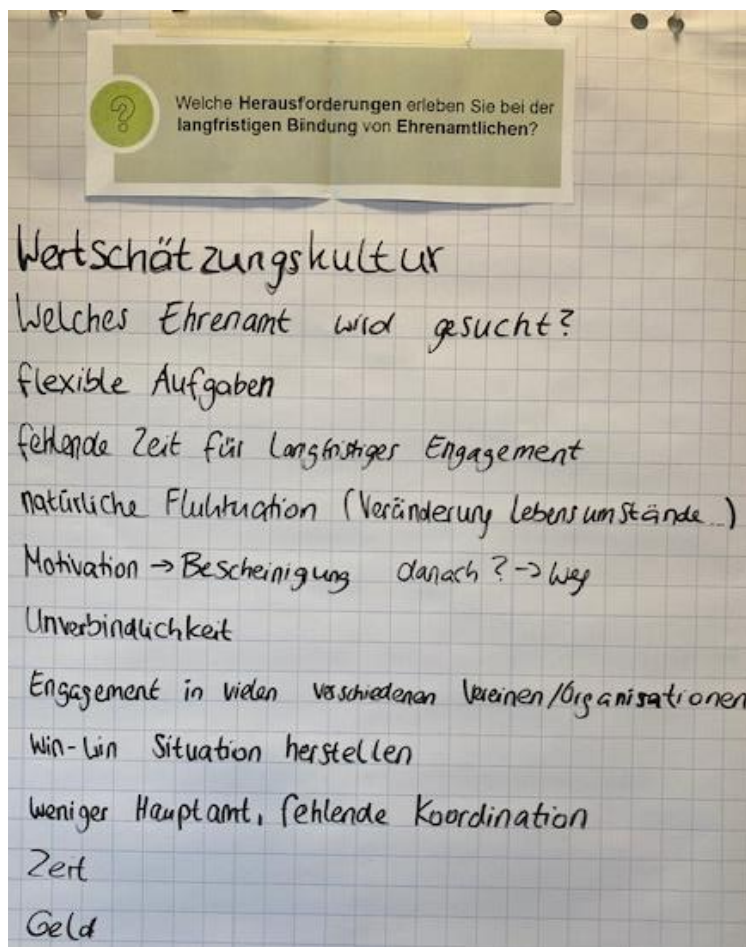 ?
Welche Herausforderungen erleben Sie bei der
langfristigen Bindung von Ehrenamtlichen?
Wertschätzungskultur
Welches Ehrenamt wird gesucht?
flexible Aufgaben
fehlende Zeit für langfristiges Engagement
natürliche Fluktuation (Veränderung Lebensumstände...)
Motivation → Bescheinigung danach? → weg
Unverbindlichkeit
Engagement in vielen verschiedenen Vereinen/Organisationen
Win-Win Situation herstellen
weniger Hauptamt, fehlende Koordination
Zeit
Geld